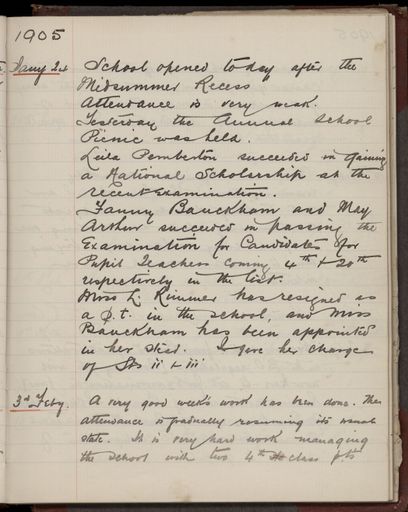 1905
Jany 24 School opened today after the
Midsummer Recess
Attendance is very weak.
Yesterday the Annual School
Picnic was held.
Leila Pemberton succeeded in gaining
a National Scholarship at the
recent Examination.
Fanny Bauckham and May
Arthur succeeded in passing the
Examination for Candidates for
Pupil Teachers coming 4th & 20th
respectively in the list.
Miss L. Rimmer has resigned as
a p.t. in the school, and Miss
Bauckham has been appointed
in her stead. I give her charge
of Sts ii & iii
3rd Feby. A very good week's work has been done. The
attendance is gradually resuming its usual
state. It is very hard work managing
the school with two 4th class p.ts